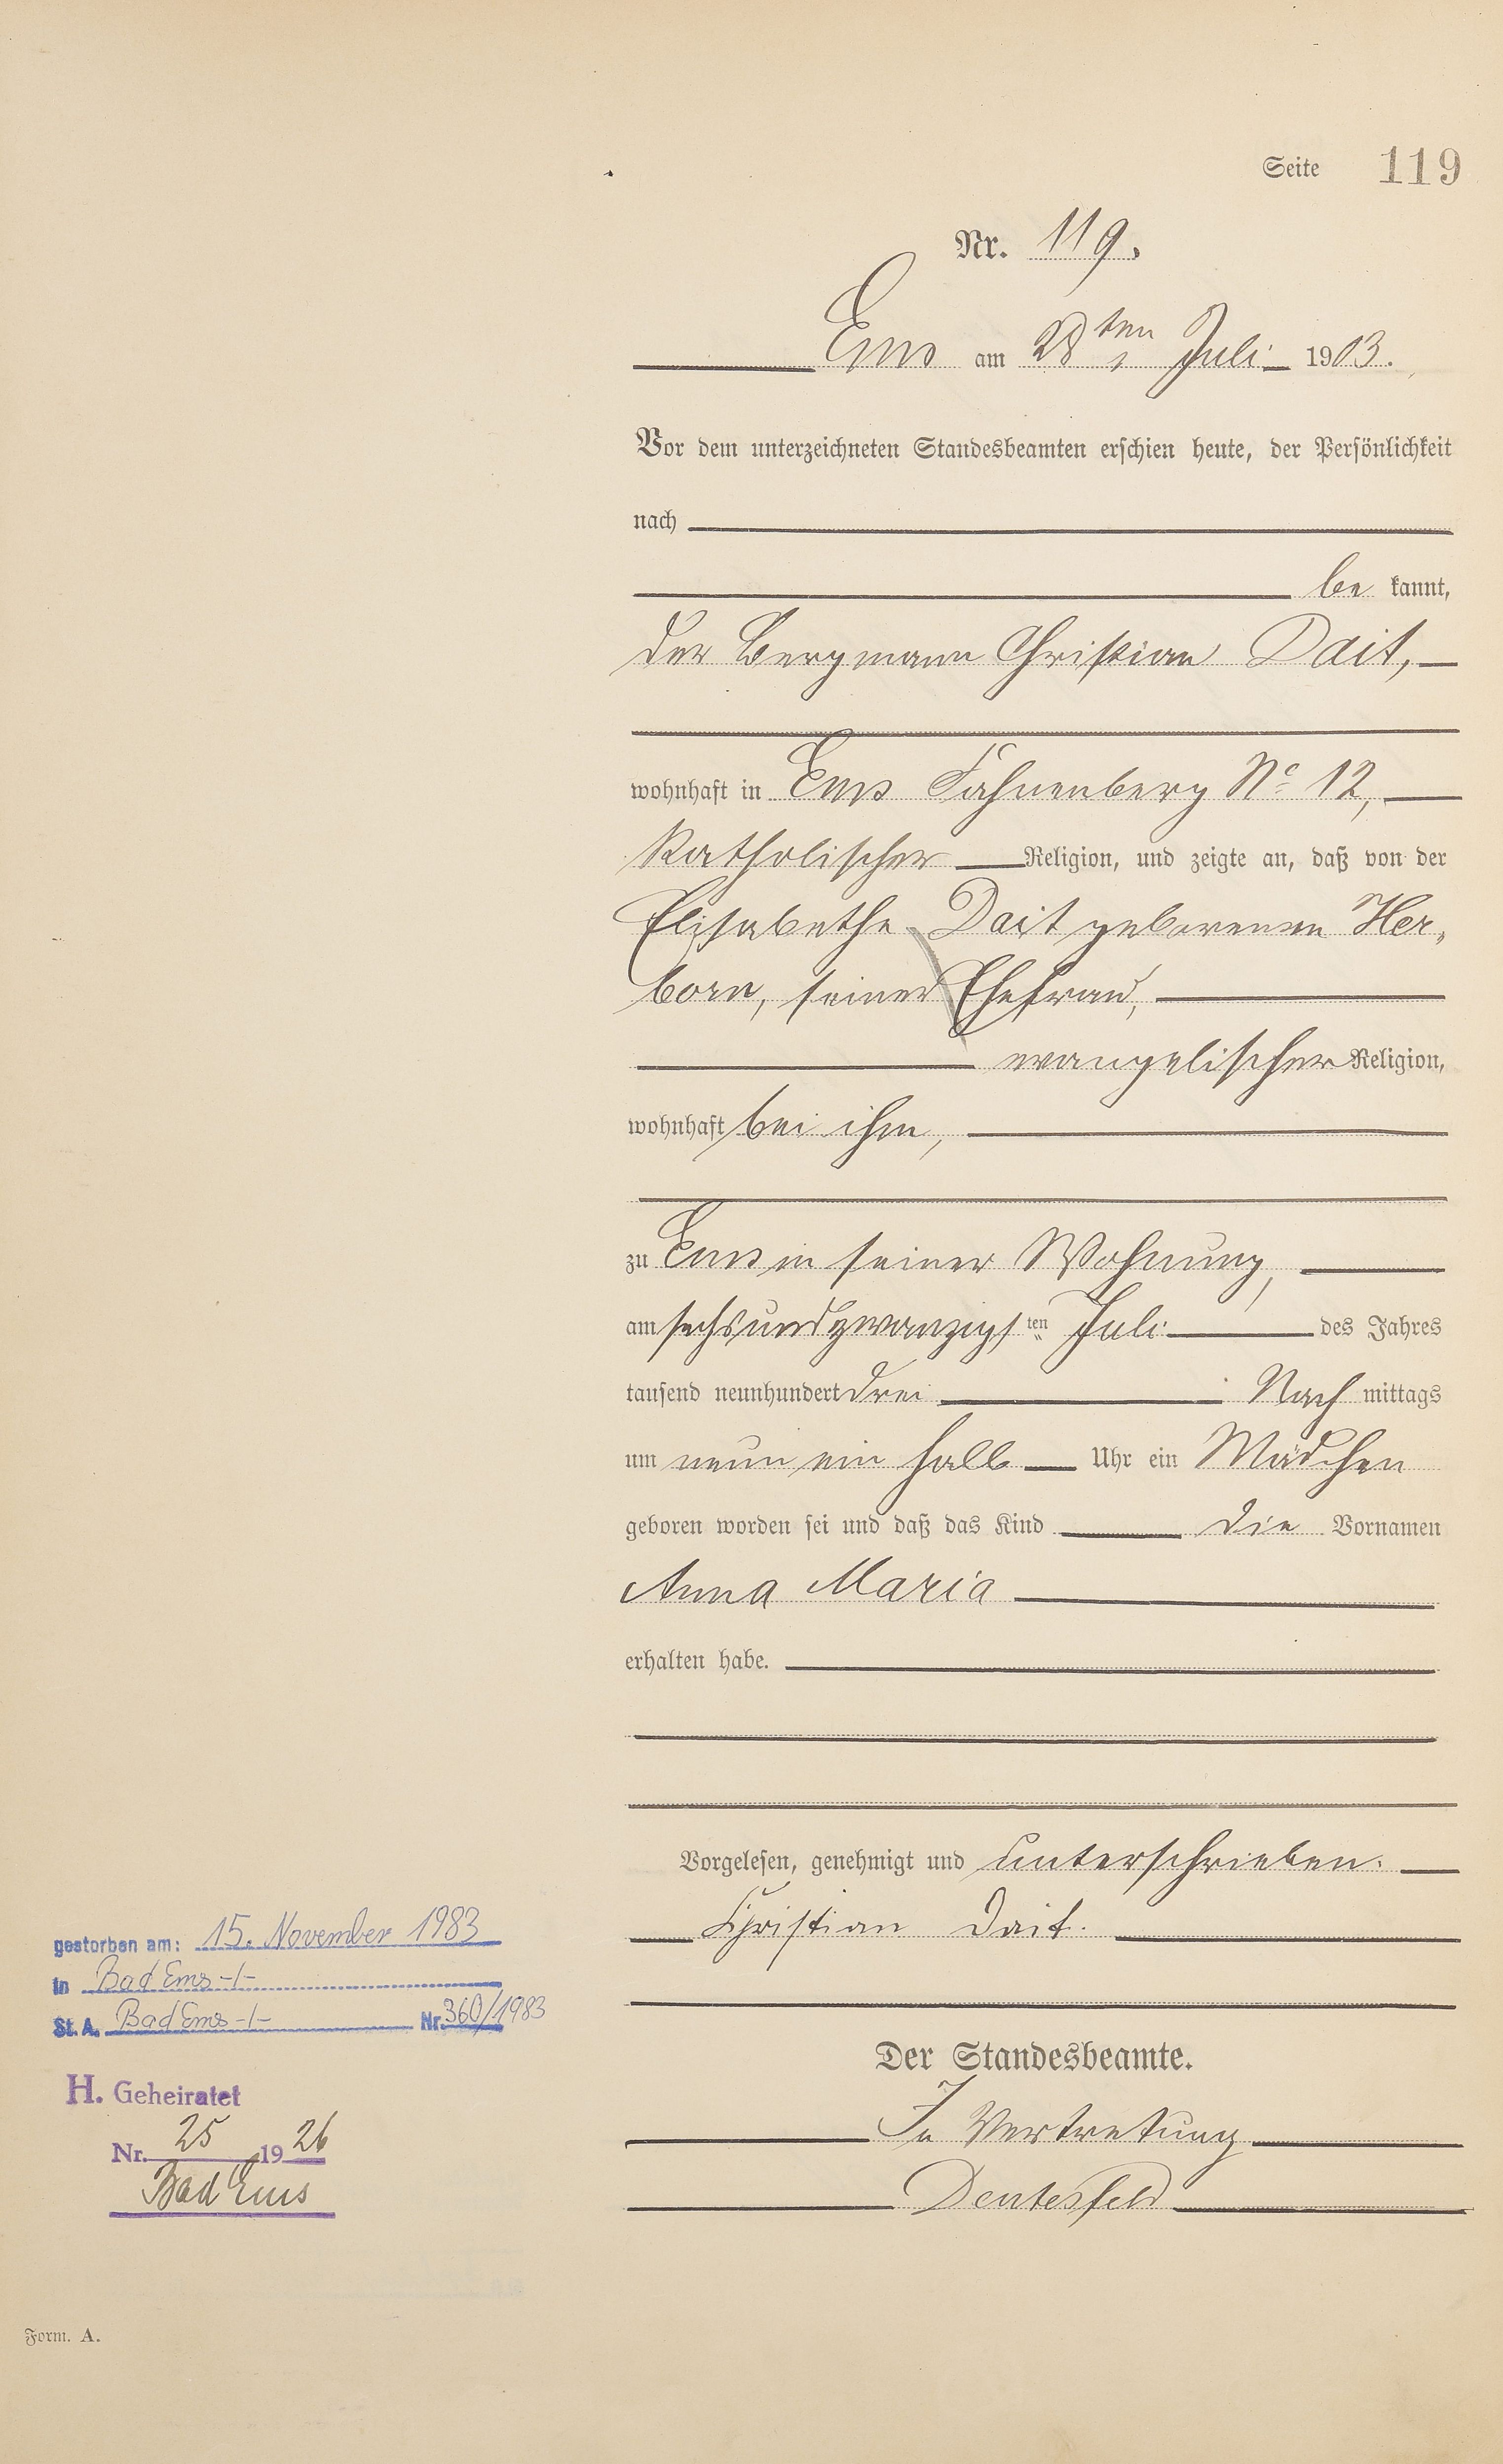 Seite 119
Nr. 119.
Ems am 28ten Juli 1903.
Vor dem unterzeichneten Standesbeamten erschien heute, der Persönlichkeit
nach
be kannt,
der Bergmann Christian Dait,
wohnhaft in Ems Fahnenberg No 12,
katholischer Religion, und zeigte an, daß von der
Elisabethe Dait geborenen Her„
born, seiner Ehefrau,
evangelischer Religion,
wohnhaft bei ihm,
zu Ems in seiner Wohnung,
am sechsundzwanzigsten Juli des Jahres
tausend neunhundert drei Nach mittags
um neun ein halb Uhr ein Mädchen
geboren worden sei und daß das Kind die Vornamen
Anna Maria
erhalten habe.
Vorgelesen, genehmigt und unterschrieben.
Christian Dait.
Der Standesbeamte.
In Vertretung
Deutesfeld
gestorben am: 15. November 1983
in Bad Ems -/-
St. A. Bad Ems -/- Nr. 360/1983
H. Geheiratet
Nr. 25 1926
Bad Ems
Form. A.